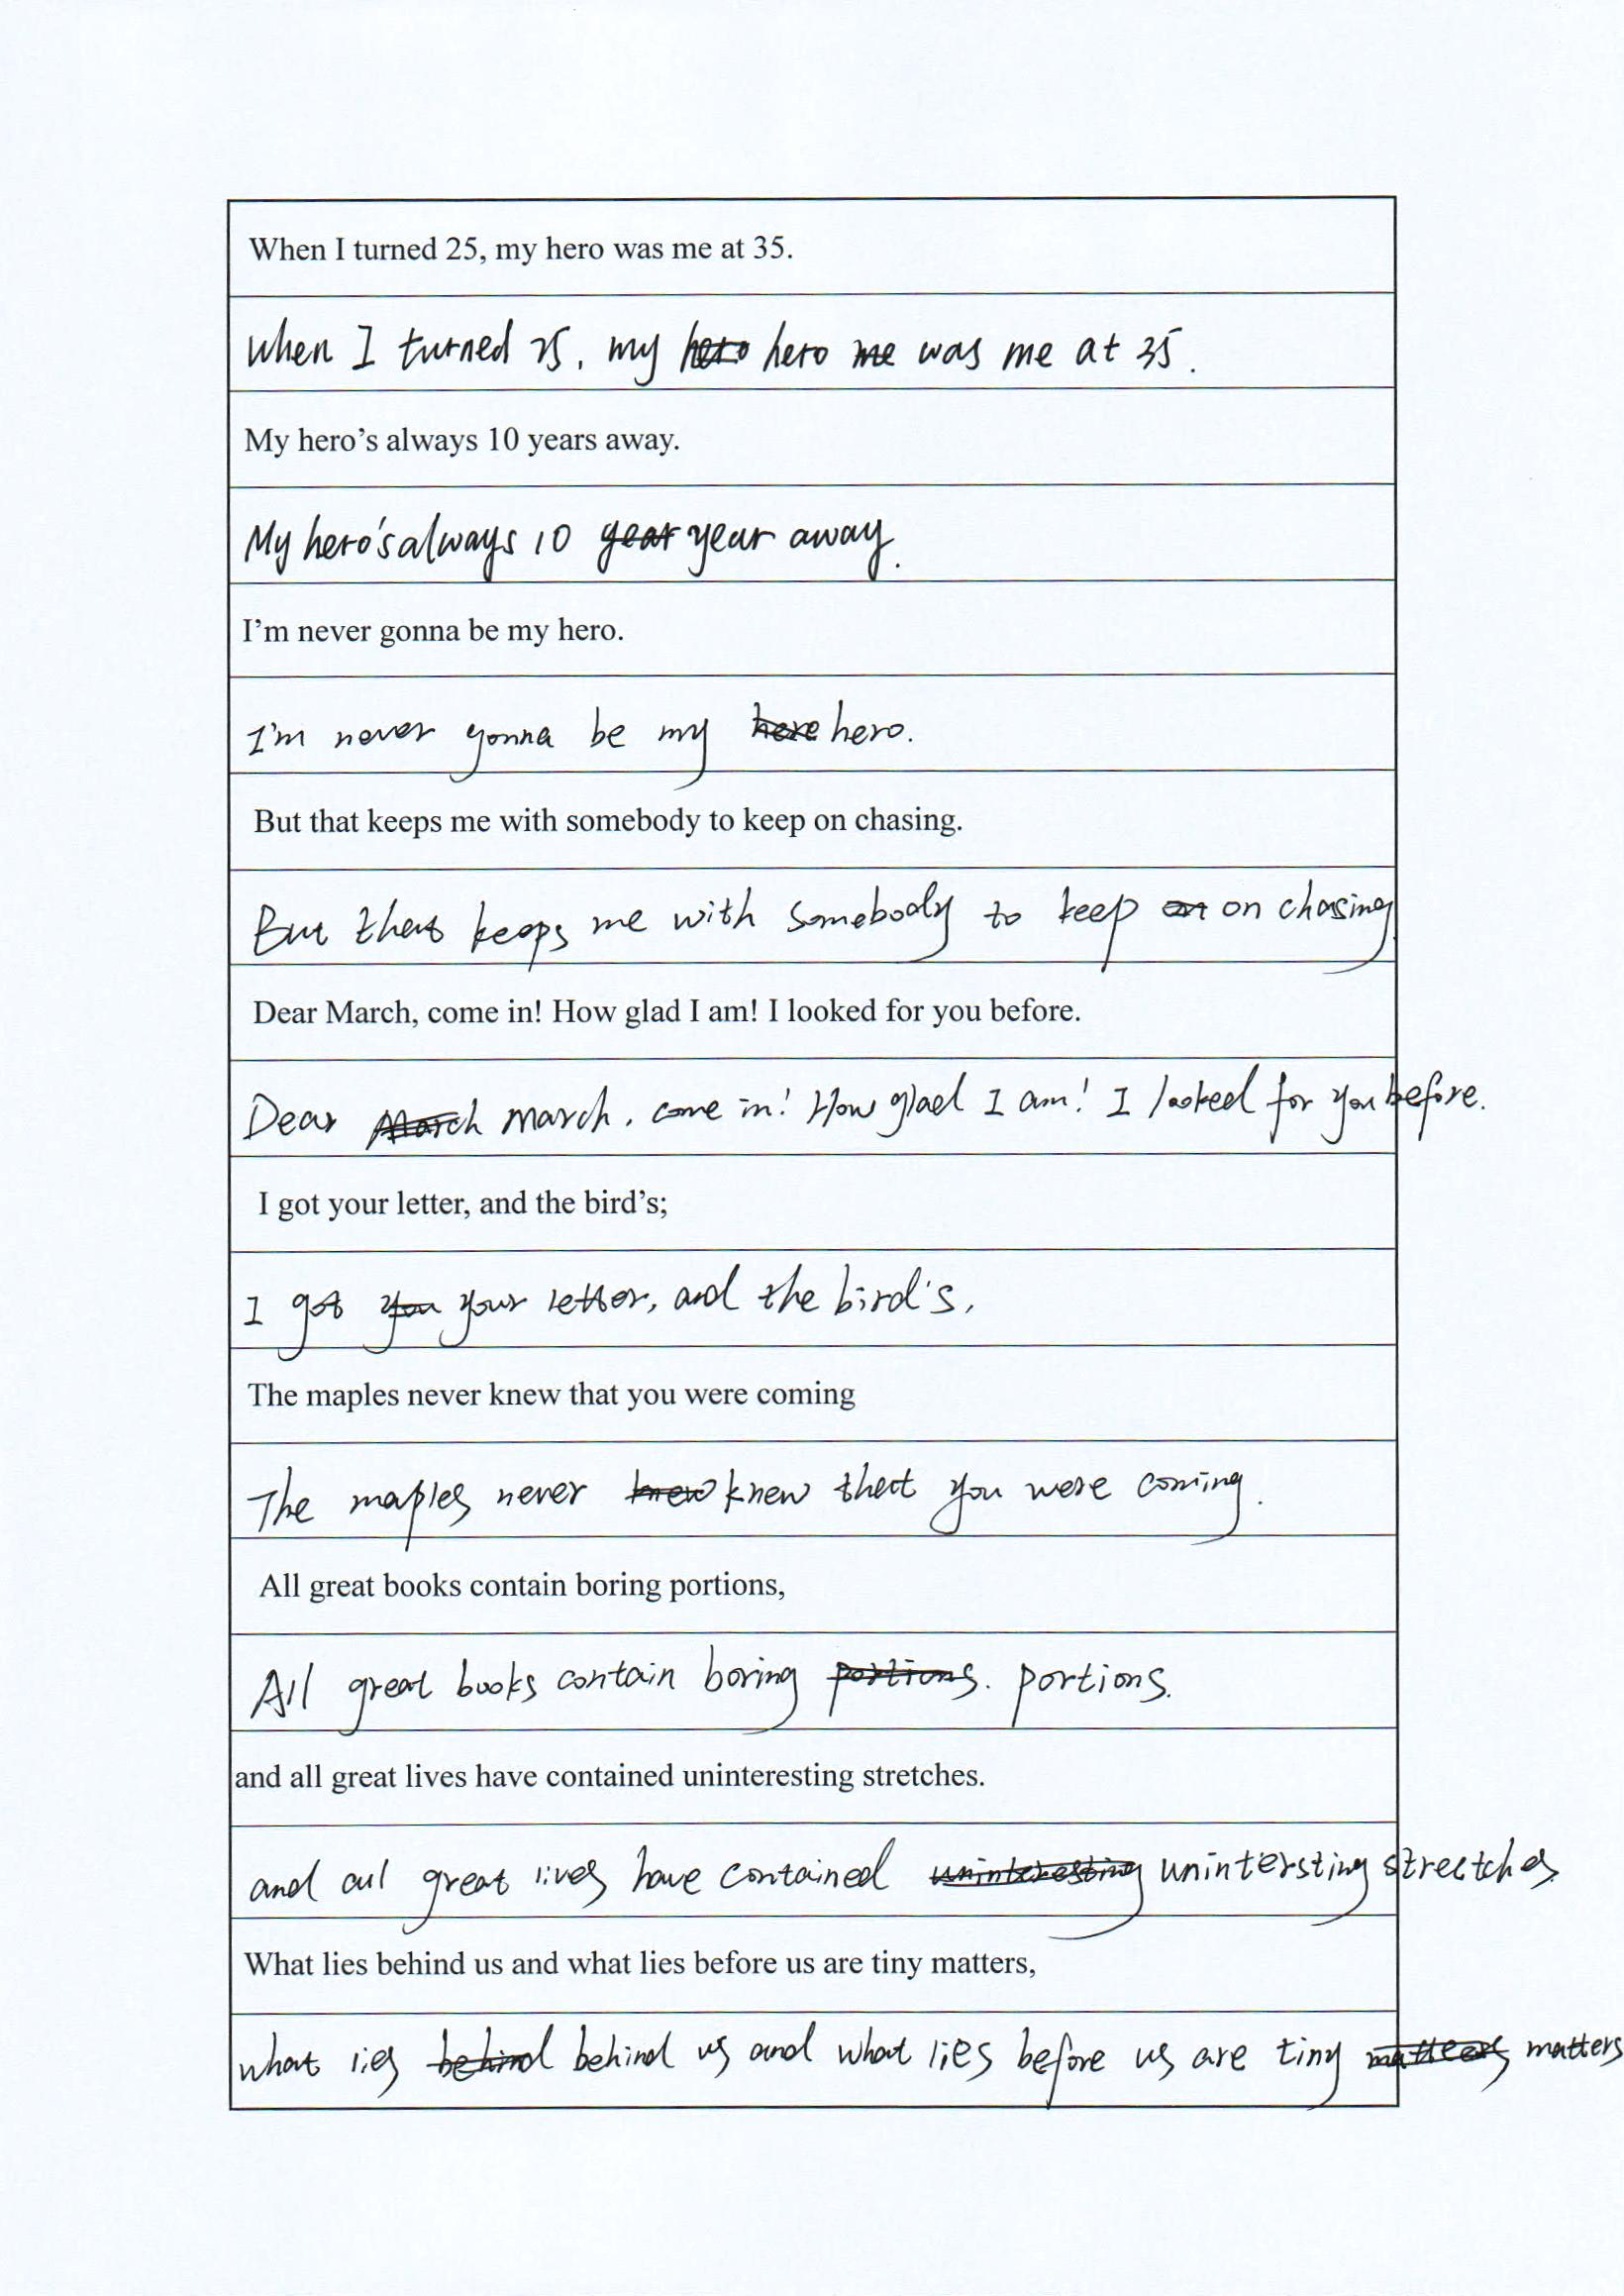 When I turned 25, my hero was me at 35.
When I turned 25, my hero hero me was me at 35.
My hero’s always 10 years away.
My hero's always 10 year year away.
I’m never gonna be my hero.
I'm never gonna be my here hero.
But that keeps me with somebody to keep on chasing.
But that keeps me with somebody to keep on on chasing.
Dear March, come in! How glad I am! I looked for you before.
Dear March March, come in! How glad I am! I looked for you before.
I got your letter, and the bird’s;
I got you your letter, and the bird's,
The maples never knew that you were coming
The maples never knew knew that you were coming.
All great books contain boring portions,
All great books contain boring portions. portions.
and all great lives have contained uninteresting stretches.
and all great lives have contained uninteresting unintersting stretches.
What lies behind us and what lies before us are tiny matters,
what lies behind behind us and what lies before us are tiny matters matters